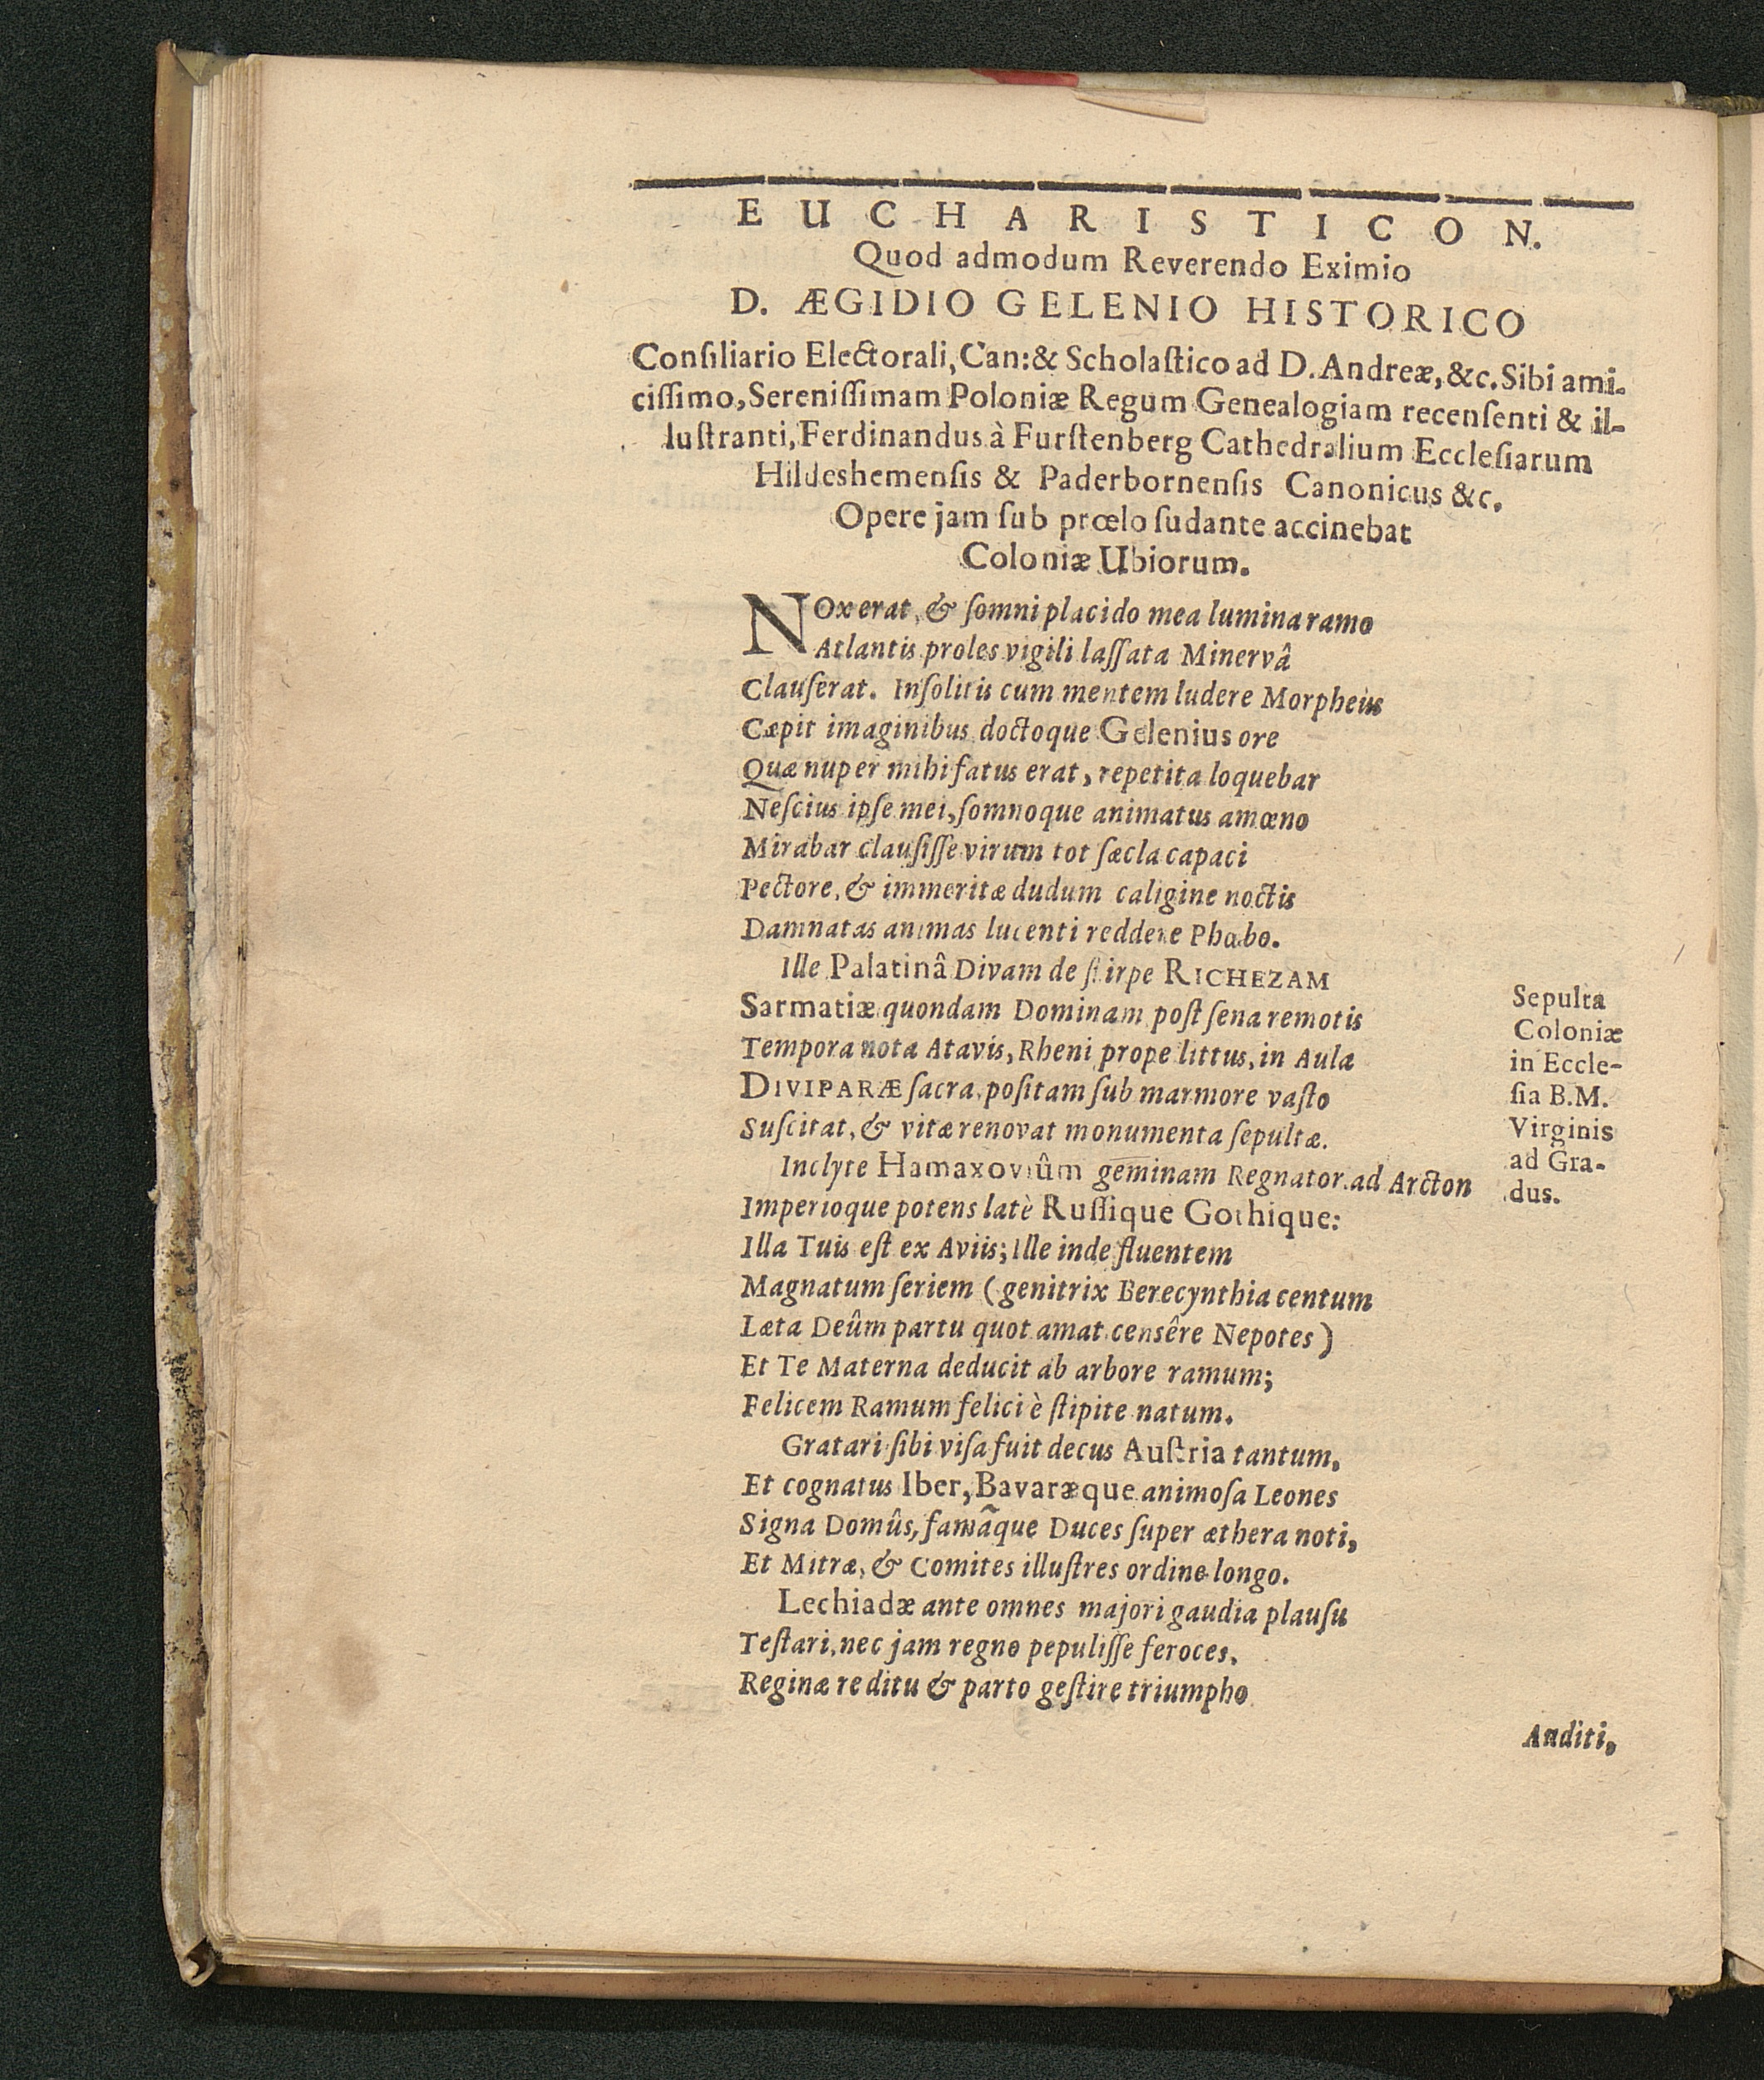 EUCHARISTICON.
Quod admodum Reverendo Eximio
D. ÆGIDIO GELENIO HISTORICO
Conſiliario Electorali, Can: & Scholaſtico ad D. Andreæ, &c. Sibi ami-
ciſſimo, Sereniſſimam Poloniæ Regum Genealogiam recenſenti & il-
luſtranti, Ferdinandus à Furſtenberg Cathedralium Eccleſiarum
Hildeshemenſis & Paderbornenſis Canonicus &c.
Opere jam ſub prœlo ſudante accinebat
Coloniæ Ubiorum.
NOx erat, & ſomni placido mea lumina ramo
Atlantis proles vigili laſſata Minervâ
Clauſerat. Inſolitis cum mentem ludere Morpheus
Cæpit imaginibus doctoque Gelenius ore
Quæ nuper mihi fatus erat, repetita loquebar
Neſcius ipſe mei, ſomnoque animatus amœno
Mirabar clauſiſſe virum tot ſæcla capaci
Pectore, & immeritæ dudum caligine noctis
Damnatas animas lucenti reddere Phœbo.
Ille Palatinâ Divam de ſtirpe RICHEZAM
Sarmatiæ quondam Dominam poſt ſena remotis
Tempora nota Atavis, Rheni prope littus, in Aula
DIVIPARÆ ſacra, poſitam ſub marmore vaſto
Suſcitat, & vitæ renovat monumenta ſepultæ.
Sepulta
Coloniæ
in Eccle-
ſia B.M.
Virginis
ad Gra-
dus.
Inclyte Hamaxoviûm geminam Regnator ad Arcton
Imperioque potens latè Ruſſique Gothique:
Illa Tuis eſt ex Aviis; Ille inde fluentem
Magnatum ſeriem (genitrix Berecynthia centum
Læta Deûm partu quot amat censêre Nepotes)
Et Te Materna deducit ab arbore ramum;
Felicem Ramum felici è ſtipite natum.
Gratari ſibi viſa fuit decus Auſtria tantum,
Et cognatus Iber, Bavaræque animoſa Leones
Signa Domûs, famãque Duces ſuper æthera noti,
Et Mitræ, & Comites illuſtres ordine longo.
Lechiadæ ante omnes majori gaudia plauſu
Teſtari, nec jam regno pepuliſſe feroces,
Reginæ reditu & parto geſtire triumpho
Auditi,